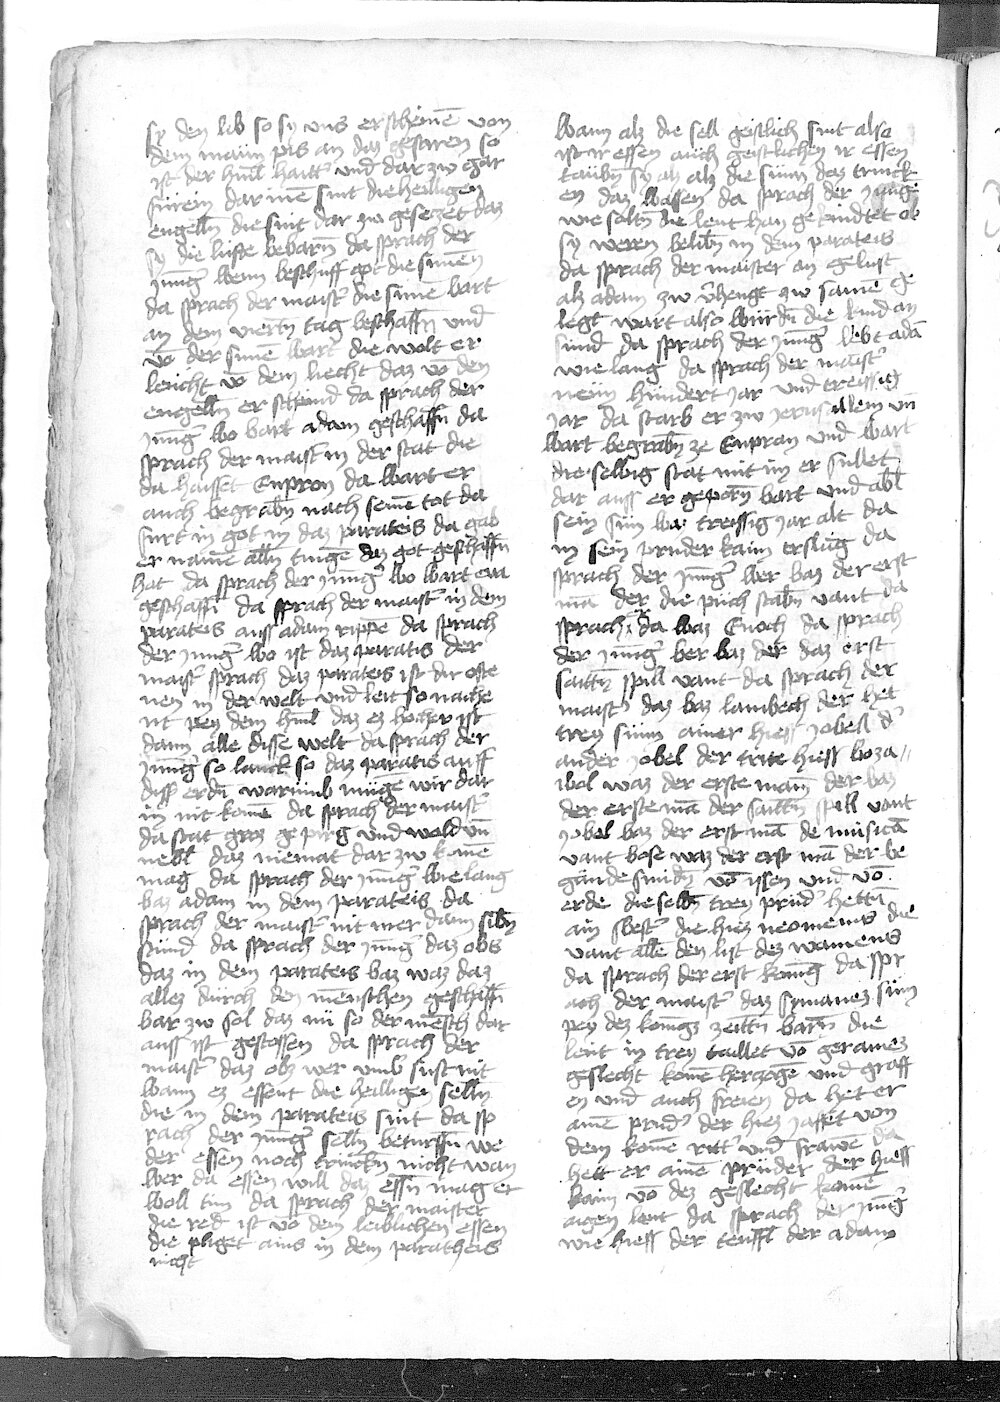 sy den lib so sy uns erscheinē von
dem maūn pis an daz gestiren so
ist der himl haitt' und dar zw gar
fürein dar inē sint die heiligen
engelln̄ die sint dar zw gesezet daz
sy die lüfte bebarn̄ da sprach der
jung' wenn beschuff got die sunnen
da sprach der maist' die sunē bart
an dem viertn̄ tag beschaffn̄ und
vō der sunē bart die wolt er
leucht vō dem liecht daz vō den
engelln̄ er schaind da sprach der
jung' wo bart adam geschaffn̄ da
sprach der maist' in der stat die
da haisset Eupron da wart er
auch begrabn̄ nach seinē tot da
furt in got in daz parateis da gab
er namē alln̄ tinge daz got geschaffn̄
hat da sprach der jung' wo wart eva
geschaffn̄ da sprach der maist' in dem
parateis auss adam rippe da sprach
der jung' wo ist daz paratis der
maist' sprach daz parateis ist dar oste
nen in der welt und leit so nache
nt pey dem himl daz ez hocher ist
dann alle disse welt da sprach der
jung' so lanck so daz paratis auff
diss erdn̄ warumb mugen wir dar
in nit komē da sprach der maist'
da stat gros ge pirg und wald un̄
nebl daz niemat dar zw komē
mag da sprach der jung' wie lang
baz adam in dem parateis da
sprach der maist' nit mer dann sibn̄
stund da sprach der jung' daz obs
daz in dem parateis baz waz daz
allez durch den menschen geschaffn̄
bar zw sol daz nū so der mensch dar
auss ist gestossen da sprach der
maist' daz obz wer umb sust nit
wann ez essent die heiligen selln̄
die in dem parateis sint da sp
rach der jung' selln̄ bedurffn̄ we
der essen noch trinckn̄ nicht wan
wer da essen will daz essn̄ mag er
woll tun da sprach der maister
die red ist vō dem leiblichen essen
die pfliget ains in dem paratheis
nicht
wann alz die sell geistlich sint also
ist ir essen auch geistlichen ir essen
alz die sunn daz trinck
en daz wassen da sprach der jung'
wie soltn̄ die leut han gekindtet ob
sy weren belibn̄ in dem parateis
da sprach der maister an gelust
alz adam zw
legt wart also wurdn̄ die kind an
sund da sprach der jung' lebt adā
wie lang da sprach der maist'
neun hundert jar und treissig
jar da starb er zw jerusalem un̄
wart begrabn̄ ze Eupran und wart
die selbig stat mit im er fullet
dar auss er geporn̄ bart und abl
sein sun waz treissig jar alt da
in sein pruder kaim erslug da
sprach der jung' wer baz der erst
mā der die puch stabn̄ vant da
sprach da waz Enoch da sprach
der jung' ber baz der daz erst
saittn̄ spill vant da sprach der
maist' daz baz lambech der het
trey sunn ainer hiess jobell d'
ander jobel der trite hiess boza
ibol waz der erste mann der baz
der erste mā der saittn̄ spill vant
jobel baz der erst mā de musicā
vant bose waz der erst mā der be
gunde smidn̄ vō issen und vō
erde die selbn̄ trey prud' hettn̄
ain swest' die hies neomenis die
vant alle den list dez wamens
da sprach der erst komg da spr
ach der maist' daz symanez sūn
pey dez komgs zeittn̄ barn̄ die
leut in trey taillet vō geramez
geslecht komē herzogē und graff
en und auch freien da het er
ainē prud' der hies jaffet von
dem komē ritt' und frawē da
hett er ainē pruder der hiess
kaim vō dez geslecht komē
aigen leut da sprach der jung'
wie hiess der teuffl der adam